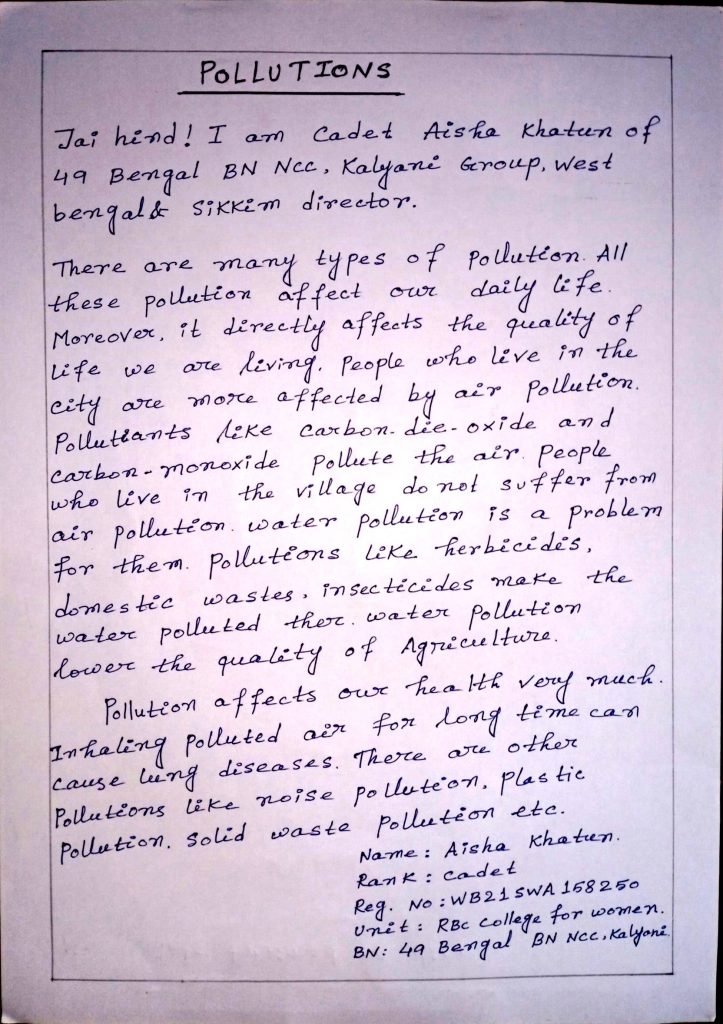 POLLUTIONS
Jai hind! I am Cadet Aisha Khatun of
49 Bengal BN NCC, Kalyani Group, West
bengal & Sikkim director.
There are many types of pollution. All
these pollution affect our daily life.
Moreover, it directly affects the quality of
life we are living. People who live in the
city are more affected by air pollution.
Pollutiants like carbon-die-oxide and
carbon-monoxide pollute the air. People
who live in the village do not suffer from
air pollution. water pollution is a problem
for them. Pollutions like herbicides,
domestic wastes, insecticides make the
water polluted ther. water pollution
lower the quality of Agriculture.
Pollution affects our health very much.
Inhaling polluted air for long time can
cause lung diseases. There are other
Pollutions like noise pollution, plastic
Pollution, solid waste pollution etc.
Name: Aisha Khatun.
Rank: cadet
Reg. No: WB21SWA158250
Unit: RBC college for women.
BN: 49 Bengal BN NCC, Kalyani